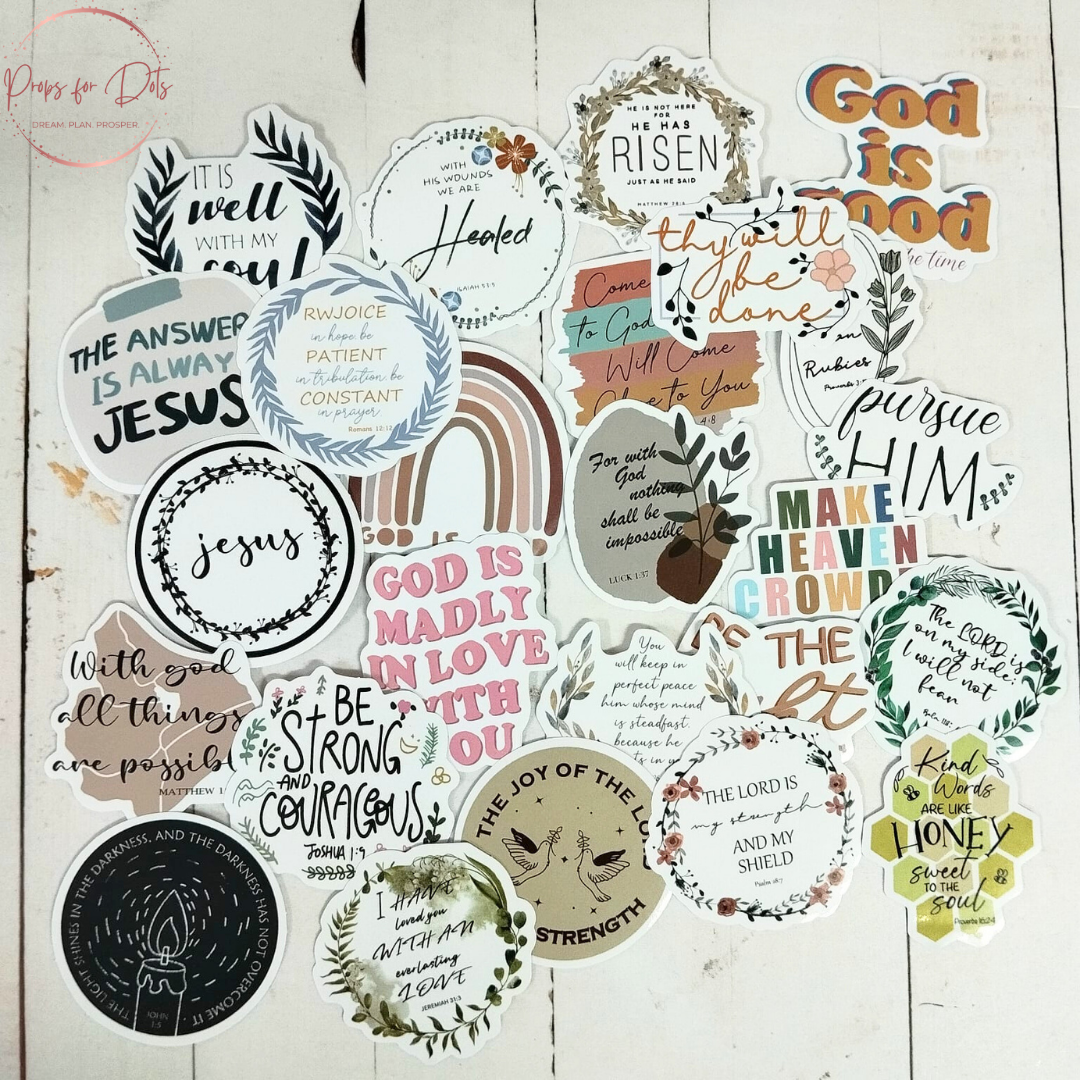 Props for Dots
DREAM. PLAN. PROSPER.
IT IS
well
WITH MY
soul
WITH
HIS WOUNDS
WE ARE
Healed
ISAIAH 53:5
HE IS NOT HERE
FOR
HE HAS
RISEN
JUST AS HE SAID
MATTHEW 28:6
God
is
Good
the time
thy will
be
done
THE ANSWER
IS ALWAY
JESUS
RWJOICE
in hope be
PATIENT
in tribulation be
CONSTANT
in prayer
Romans 12:12
GOD IS
Come
to God
Will Come
Close to You
4:8
Rubies
pursue
HIM
jesus
For with
God
nothing
shall be
impossible
LUCK 1:37
MAKE
HEAVEN
CROWD
GOD IS
MADLY
IN LOVE
WITH
OU
With god
all things
are possibl
MATTHEW 1
BE
STRONG
AND
COURAGEOUS
JOSHUA 1:9
You
will keep in
perfect peace
him whose mind
is steadfast,
because he
BE THE
The LORD is
on my side;
I will not
fear
THE LIGHT SHINES IN THE DARKNESS, AND THE DARKNESS HAS NOT OVERCOME IT
JOHN
1:5
I HAVE
loved you
WITH AN
everlasting
LOVE
JEREMIAH 31:3
THE JOY OF THE LO
STRENGTH
THE LORD IS
my strength
AND MY
SHIELD
Psalm 28:7
Kind
Words
ARE LIKE
HONEY
sweet
TO THE
soul
Proverbs 16:24